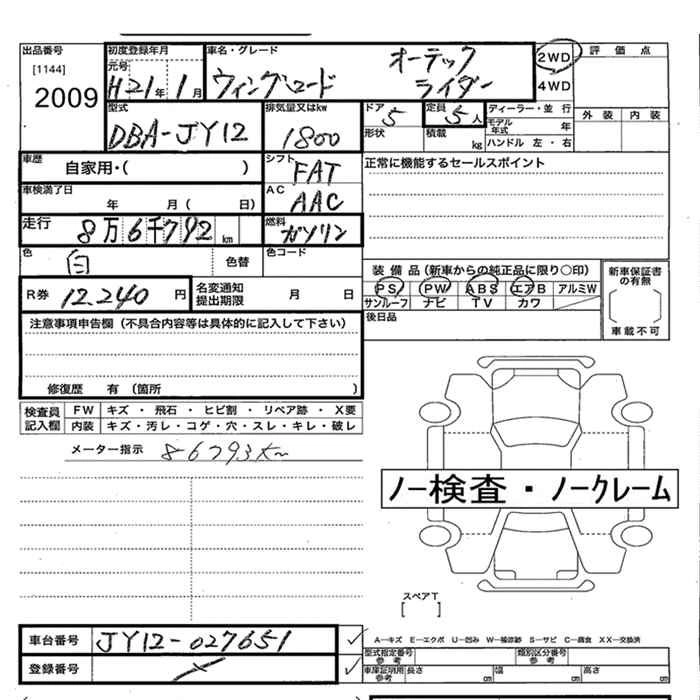 出品番号
[1144]
2009
初度登録年月
元号
H21年 1月
車名・グレード
ウィングロード
オーテック
ライダー
2WD
4WD
評価点
外装 内装
型式
DBA-JY12
排気量又はkw
1800
ドア
5
形状
定員
5人
積載 kg
ディーラー・並行
モデル年式 年
ハンドル 左・右
車歴
自家用・( )
シフト
FAT
正常に機能するセールスポイント
車検満了日
年 月( 日)
AC
AAC
走行
8万6千792km
燃料
ガソリン
色
白
色替
色コード
装備品(新車からの純正品に限り○印)
PS PW ABS エアB アルミW
サンルーフ ナビ TV カワ
新車保証書の有無
車載不可
R券 12,240 円
名変通知
提出期限
月 日
後日品
注意事項申告欄(不具合内容等は具体的に記入して下さい)
修復歴 有(箇所 )
検査員記入欄
FW キズ・飛石・ヒビ割・リペア跡・X要
内装 キズ・汚レ・コゲ・穴・スレ・キレ・破レ
メーター指示 86793km
ノー検査・ノークレーム
スペアT
[ ]
車台番号 JY12-027651
登録番号
A-キズ E-エクボ U-凹み W-補修跡 S-サビ C-腐食 XX-交換済
型式指定番号
参考
類別区分番号
参考
車庫証明用
参考
長さ cm
幅 cm
高さ cm